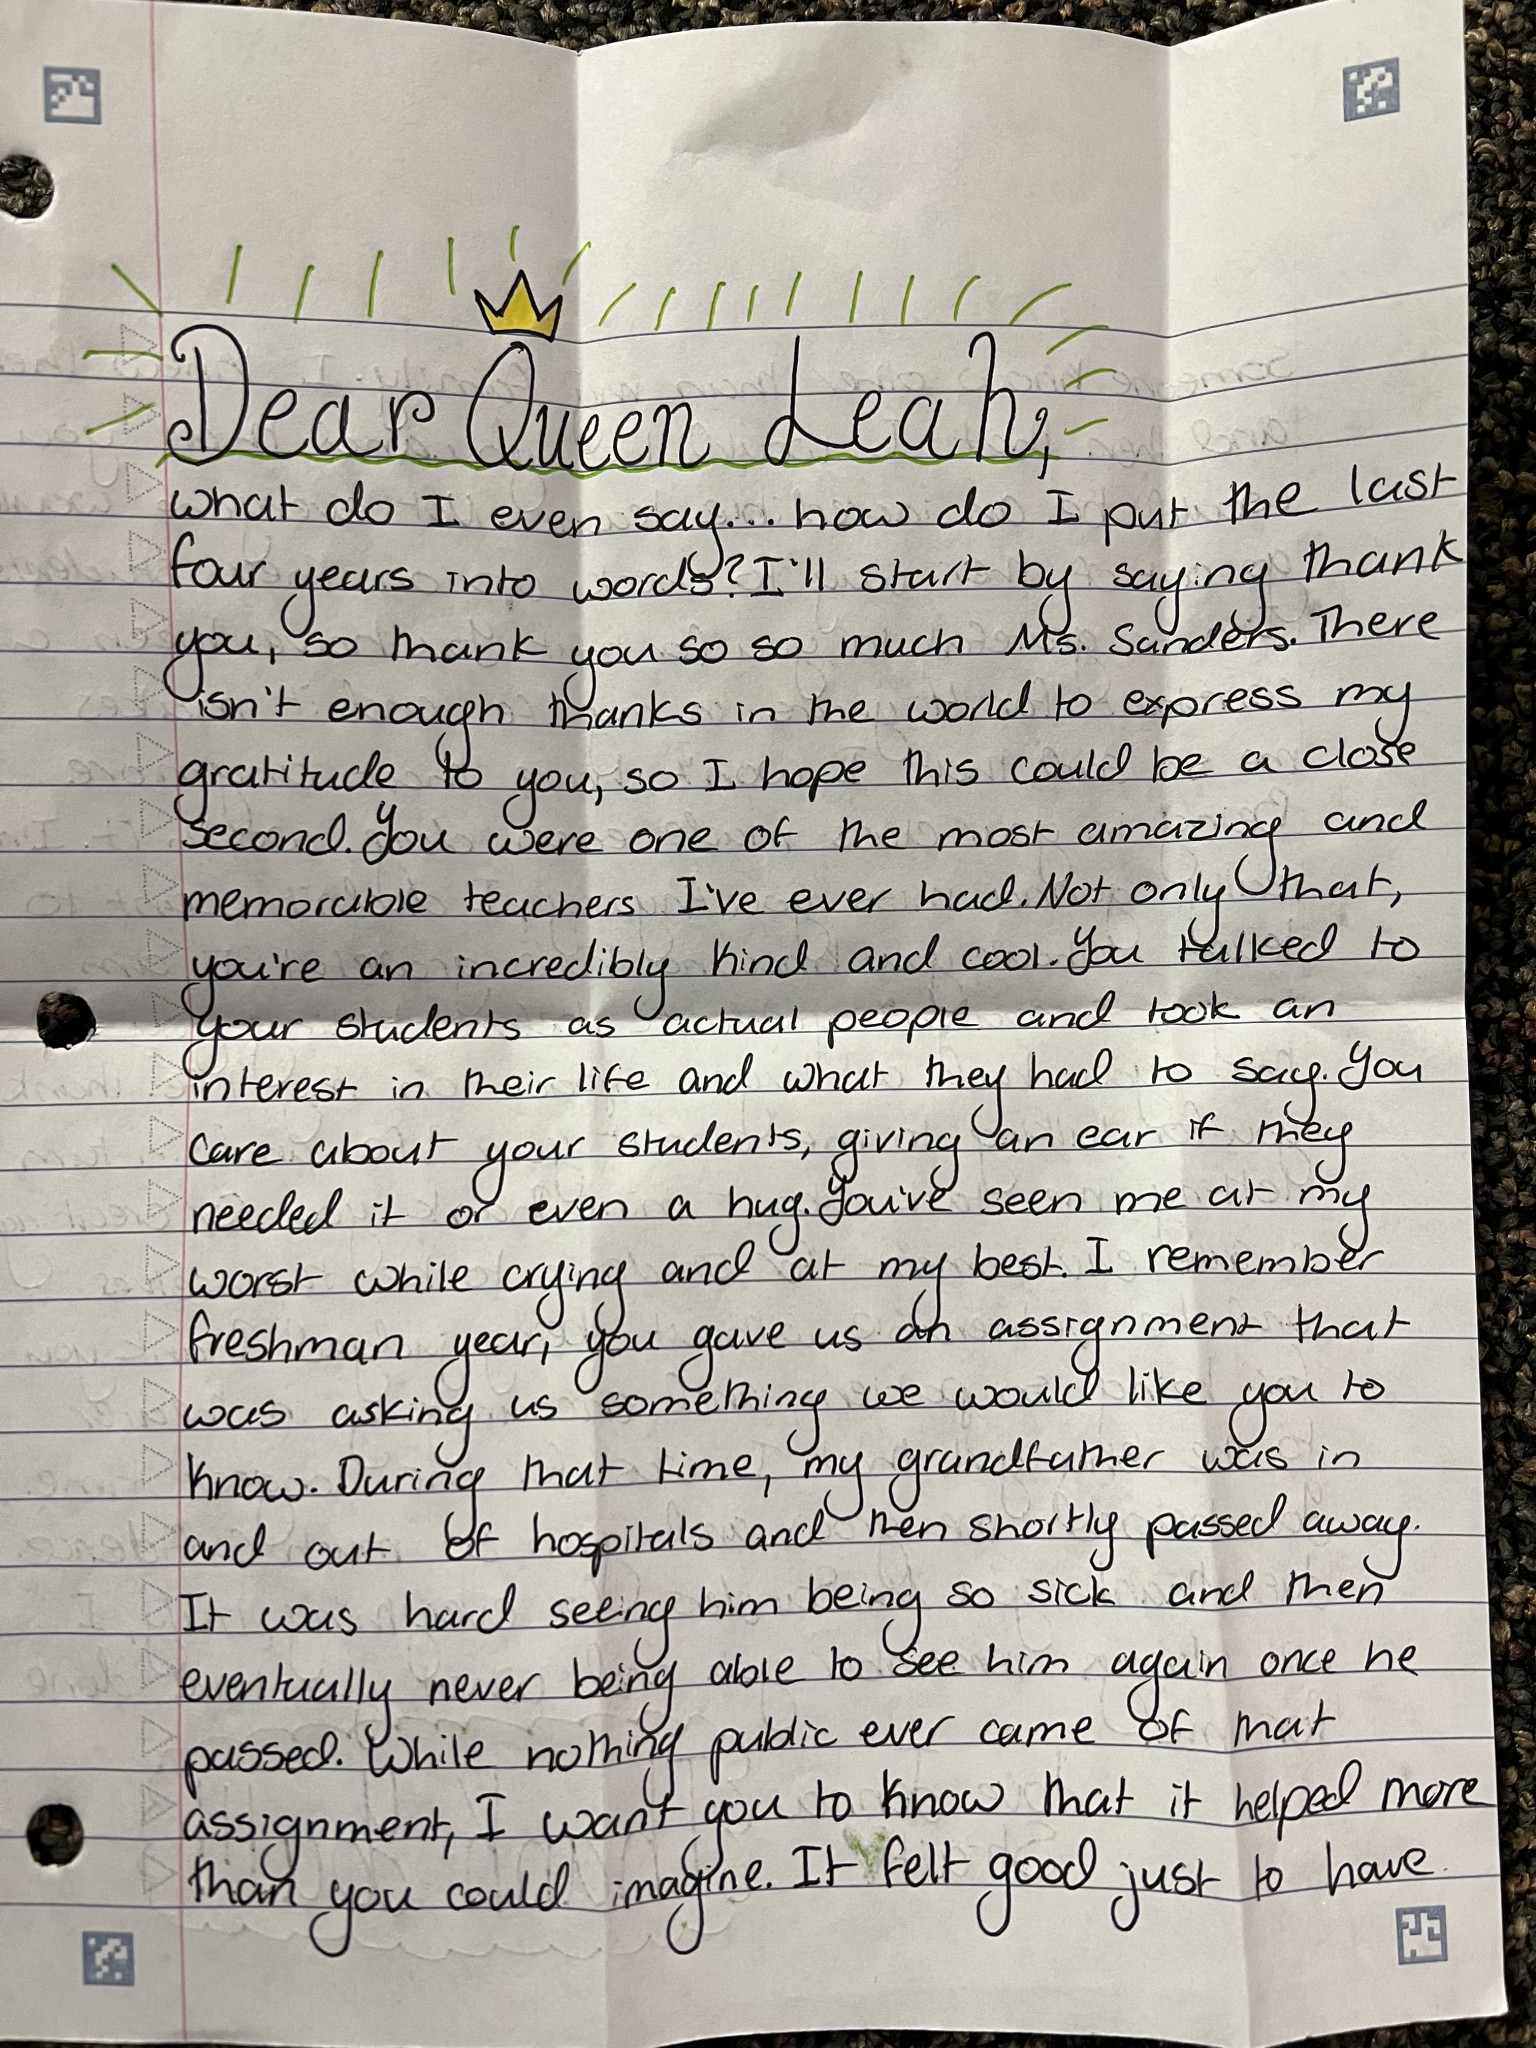 Dear Queen Leah,
What do I even say... how do I put the last
four years into words? I'll start by saying thank
you, so thank you so so much Ms. Sanders. There
isn't enough thanks in the world to express my
gratitude to you, so I hope this could be a close
second. You were one of the most amazing and
memorable teachers I've ever had. Not only that,
you're an incredibly kind and cool. You talked to
your students as actual people and took an
interest in their life and what they had to say. You
care about your students, giving an ear if they
needed it or even a hug. You've seen me at my
worst while crying and at my best. I remember
freshman year, you gave us an assignment that
was asking us something we would like you to
know. During that time, my grandfather was in
and out of hospitals and then shortly passed away.
It was hard seeing him being so sick and then
eventually never being able to see him again once he
passed. While nothing public ever came of that
assignment, I want you to know that it helped more
than you could imagine. It felt good just to have